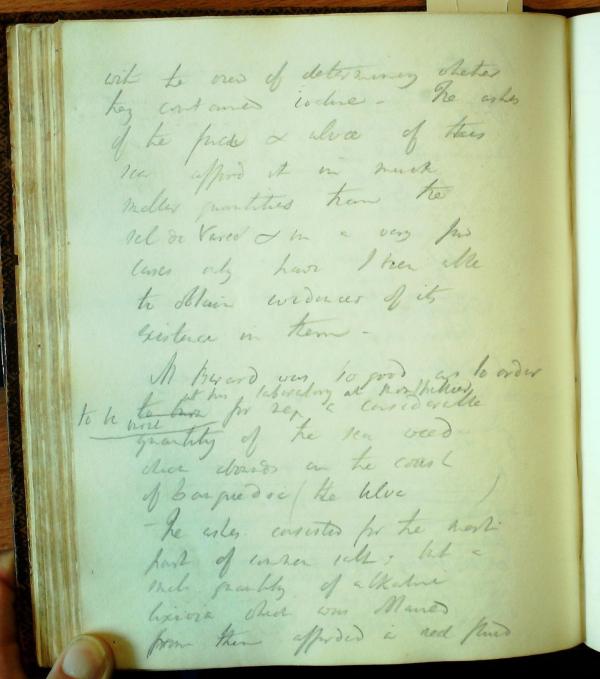 with the view of determining whether
they contained iodine - The ashes
of the fuci & ulvae of this
sea afford it in much
smaller quantities than the
sel de Vareck & in a very few
cases only have I been able
to obtain evidences of its
existence in them -
M Berard was so good as to order
at his laboratory at Montpellier
to be for me a considerable
quantity of the sea weed
which abounds on the coast
of Languedoc (the ulva )
- The ashes consisted for the most
part of common salt; but a
small quantity of alkaline
lixivia which was obtained
from them afforded a red fluid